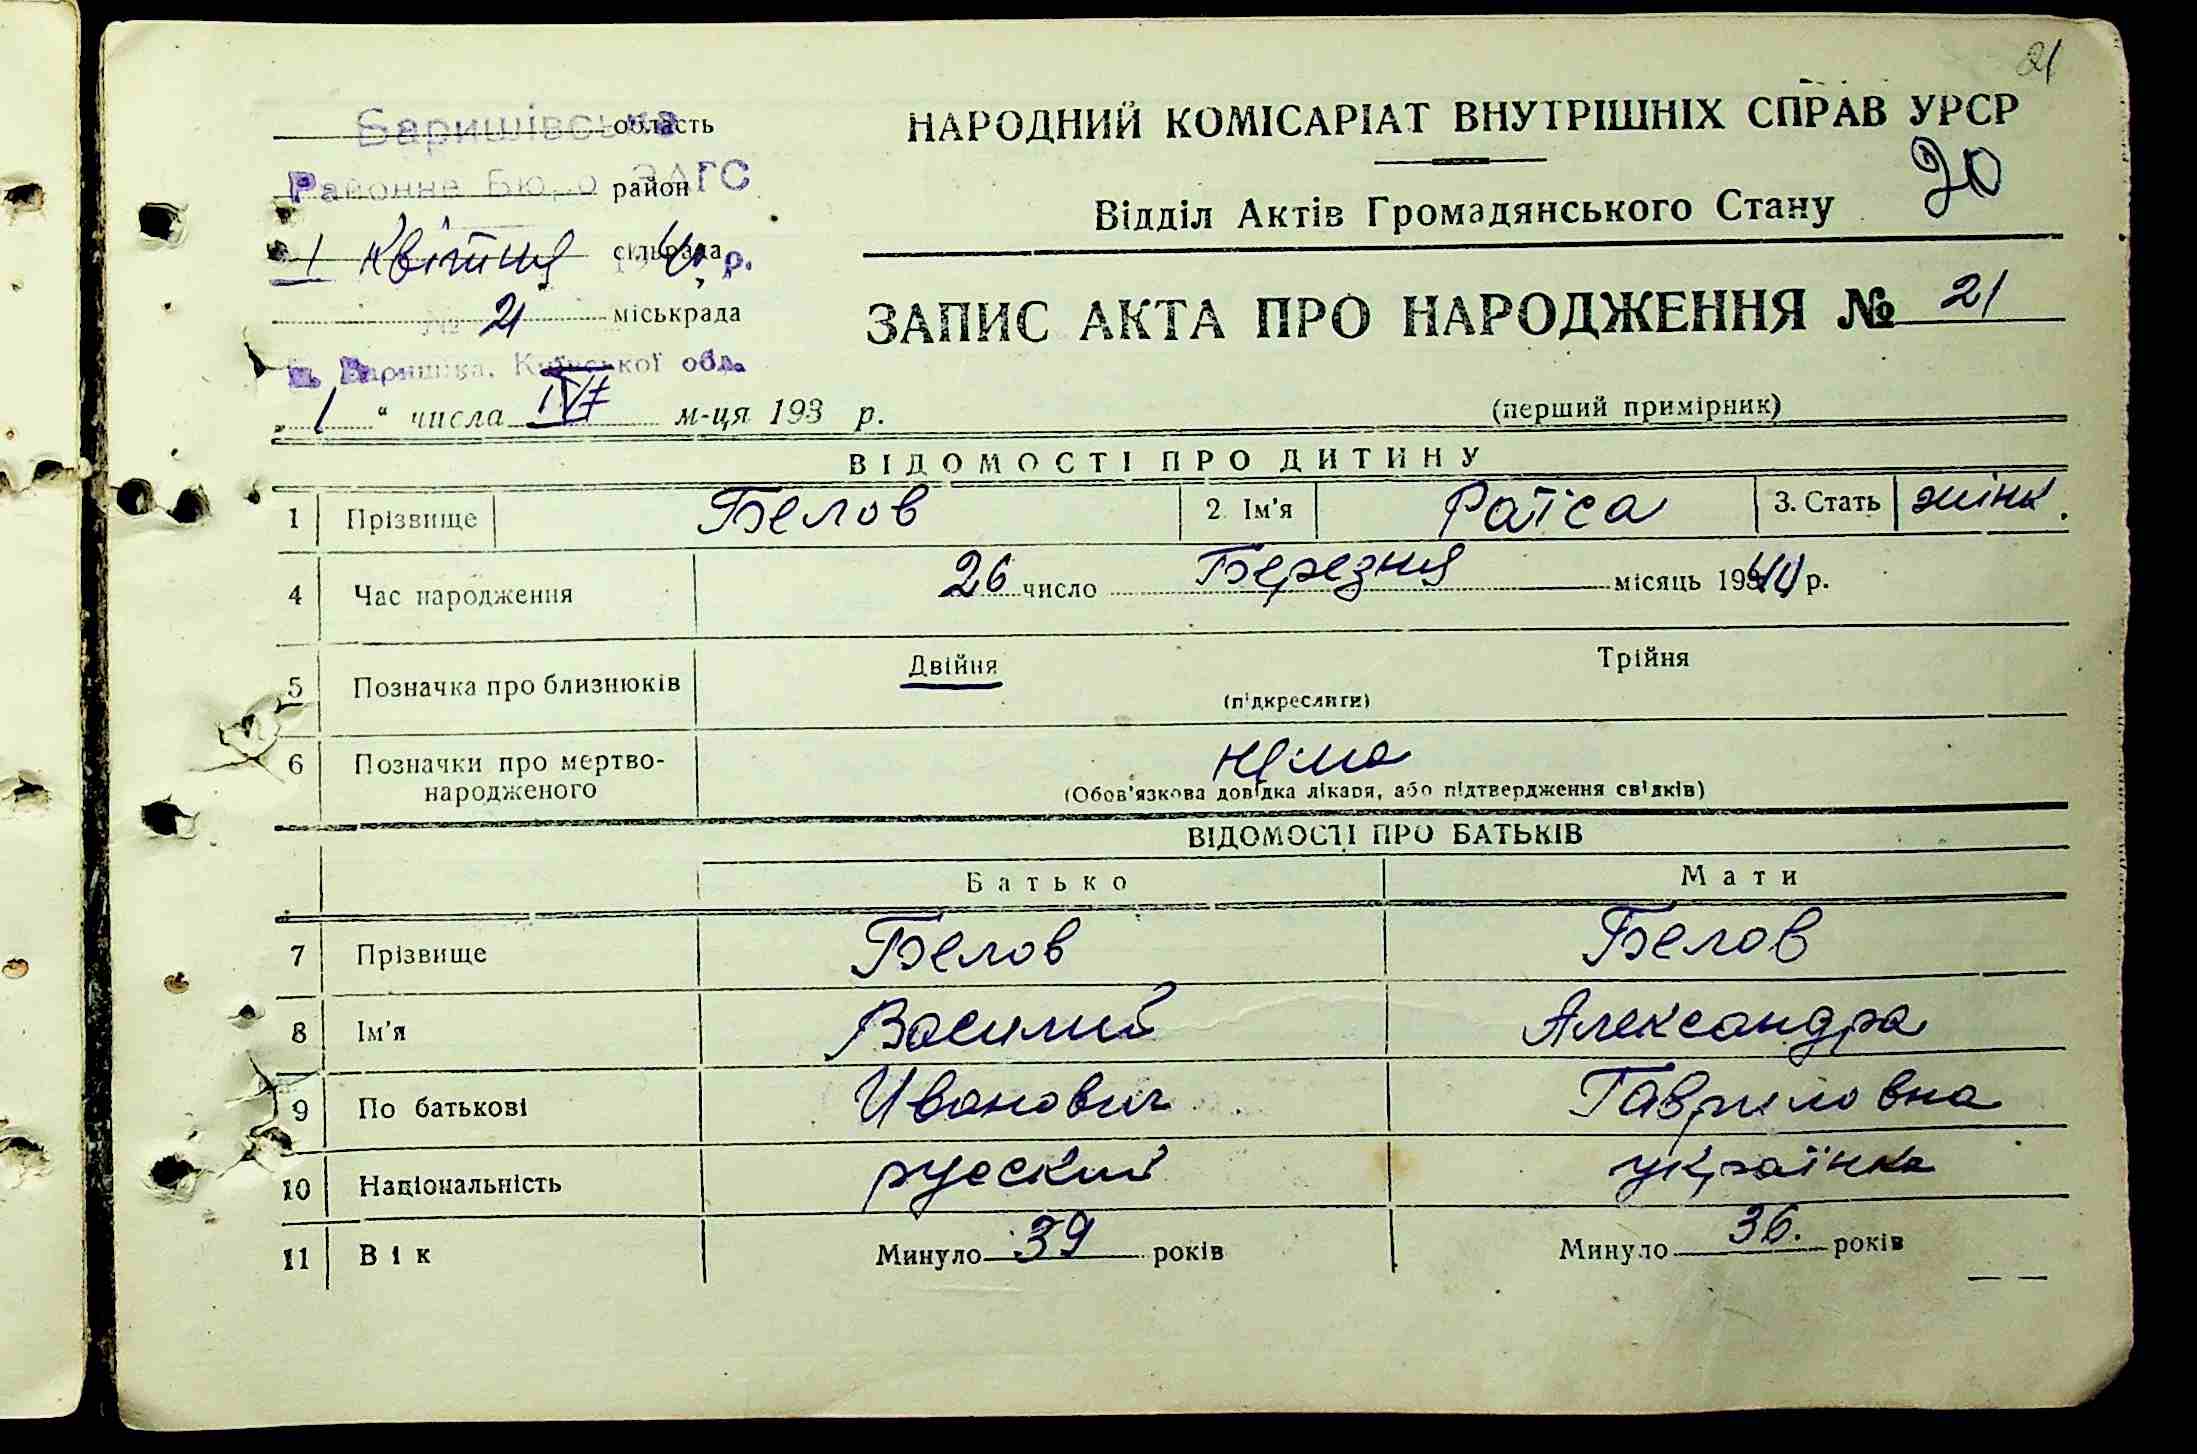 21
Баришівська область
Районне Бюро ЗАГС район
1 квітня 40 р. сільрада
№ 21 міськрада
м. Баришівка, Київської обл.
„ 1 “ числа IV м-ця 193 р.
НАРОДНИЙ КОМІСАРІАТ ВНУТРІШНІХ СПРАВ УРСР
20
Відділ Актів Громадянського Стану
ЗАПИС АКТА ПРО НАРОДЖЕННЯ № 21
(перший примірник)
ВІДОМОСТІ ПРО ДИТИНУ
1 Прізвище Белов 2. Ім'я Раїса 3. Стать жінк.
4 Час народження 26 число Березня місяць 1940 р.
5 Позначка про близнюків Двійня Трійня
(підкреслити)
6 Позначки про мертво-народженого нема
(Обов'язкова довідка лікаря, або підтвердження свідків)
ВІДОМОСТІ ПРО БАТЬКІВ
Батько Мати
7 Прізвище Белов Белов
8 Ім'я Василий Александра
9 По батькові Иванович Гавриловна
10 Національність русский українка
11 Вік Минуло 39 років Минуло 36. років